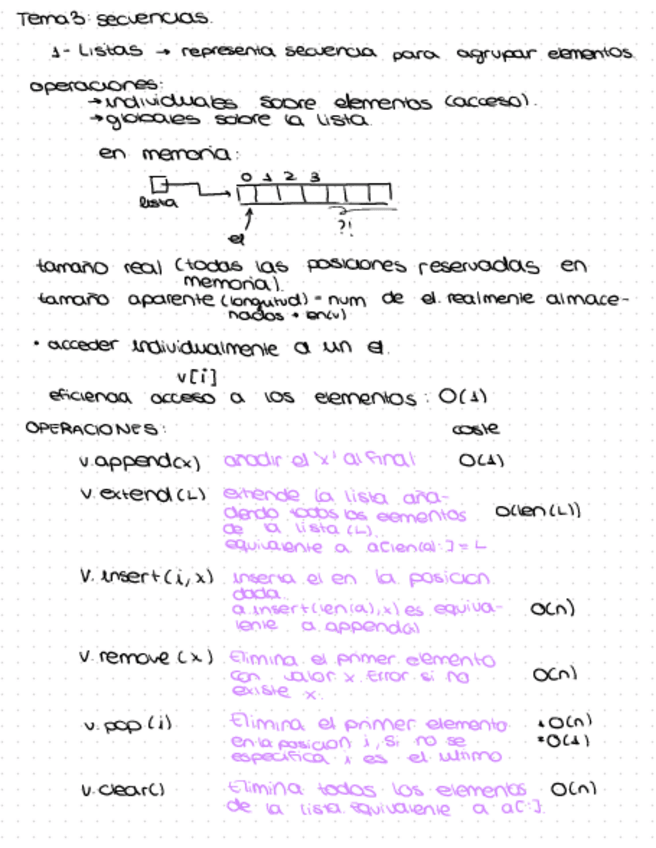 Tema 3: secuencias.
1- Listas → representa secuencia para agrupar elementos
operaciones:
→ individuales sobre elementos (acceso).
→ globales sobre la lista.
en memoria:
0 1 2 3
lista
?!
el
tamaño real (todas las posiciones reservadas en
memoria).
tamaño aparente (longitud) = num de el. realmente almace-
nados → len(v)
• acceder individualmente a un el.
v[i]
eficiencia acceso a los elementos: O(1)
OPERACIONES: coste
v.append(x) añadir el 'x' al final O(1)
v.extend(L) extiende la lista aña-
diendo todos los elementos O(len(L))
de la lista (L).
equivalente a a[len(a):] = L
v.insert(i,x) inserta el en la posicion
dada.
a.insert(len(a),x) es equiva- O(n)
lente a append(x)
v.remove(x) Elimina el primer elemento
con valor x. Error si no O(n)
existe x.
v.pop(i) Elimina el primer elemento O(n)
en la posicion i, si no se O(1)
especifica i es el ultimo
v.clear() Elimina todos los elementos O(n)
de la lista. equivalente a a[:]